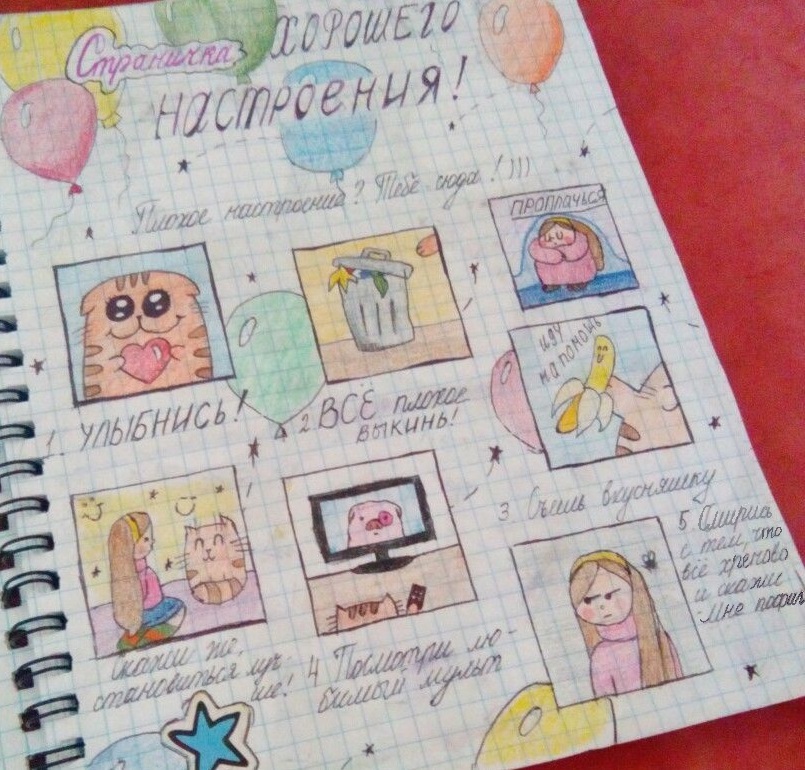 Страничка ХОРОШЕГО
НАСТРОЕНИЯ!
Плохое настроение? Тебе сюда!)))
ПРОПЛАЧЬСЯ
ИДУ
НА ПОМОЩЬ
1. УЛЫБНИСЬ!
2. ВСЁ плохое
ВЫКИНЬ!
3 Съешь вкусняшку
Скажи же,
становиться луч-
ше!
4 Посмотри лю-
бимый мульт
5. Смирись
с тем, что
всё хреново
и скажи
-Мне пофиг